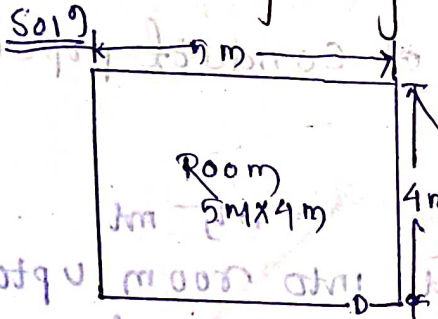 Sol9
5 m
Room
5m x 4 m
4m
D